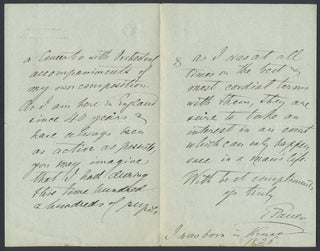 a Concerto with Orchestral
accompaniments of
my own composition.
As I am here in England
since 40 years &
have always been
as active as possible
you may imagine
that I had during
this time hundred
& hundreds of pupils
& as I was at all
times on the best &
most cordial terms
with them, they are
sure to take an
interest in an event
which can only happen
once in a man's life.
With best compliments
yrs truly
E Pauer
I was born in Vienna
1826